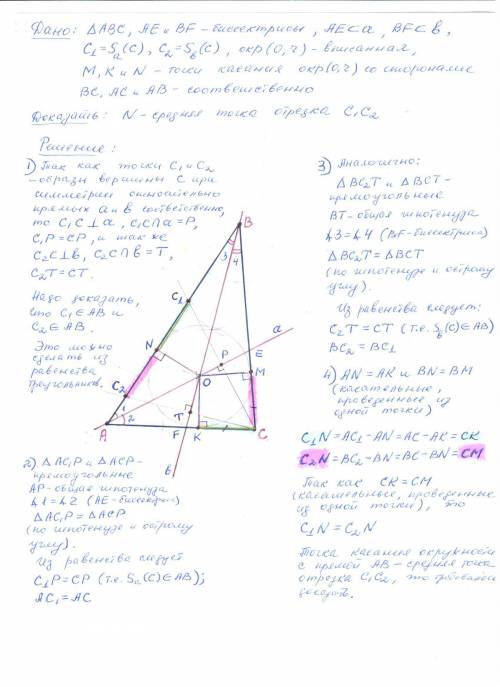 Дано: △ABC, AE и BF - биссектрисы, AE⊂a, BF⊂b,
C₁=Sₐ(C), C₂=S_b(C), окр(O,r) - вписанная,
M, K и N - точки касания окр(O,r) со сторонами
BC, AC и AB - соответственно
Доказать: N - средняя точка отрезка C₁C₂
Решение:
1) Так как точки C₁ и C₂
- образы вершины C при
симметрии относительно
прямых a и b соответственно,
то C₁C⊥a, C₁C∩a=P,
C₁P=CP, и так же
C₂C⊥b, C₂C∩b=T,
C₂T=CT.
Надо доказать,
что C₁∈AB и
C₂∈AB.
Это можно
сделать из
равенства
треугольников.
B
3
4
C₁
a
N
P
E
M
O
C₂
T
1
2
A
F
K
C
b
2) △AC₁P и △ACP -
прямоугольные
AP - общая гипотенуза
∠1=∠2 (AE - биссектриса)
△AC₁P=△ACP
(по гипотенузе и острому
углу).
Из равенства следует
C₁P=CP (т.е. Sₐ(C)∈AB);
AC₁=AC
3) Аналогично:
△BC₂T и △BCT -
прямоугольные
BT - общая гипотенуза
∠3=∠4 (BF - биссектриса)
△BC₂T=△BCT
(по гипотенузе и острому
углу).
Из равенства следует:
C₂T=CT (т.е. S_b(C)∈AB)
BC₂=BC₁
4) AN=AK и BN=BM
(касательные,
проведенные из
одной точки)
C₁N=AC₁-AN=AC-AK=CK
C₂N=BC₂-BN=BC-BN=CM
Так как CK=CM
(касательные, проведенные
из одной точки), то
C₁N=C₂N
Точка касания окружности
с прямой AB - средняя точка
отрезка C₁C₂, что требовалось
доказать.